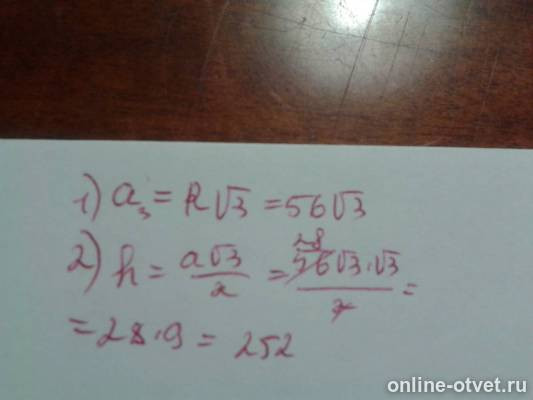 1) a₃ = R√3 = 56√3
2) h = a√3/2 = 28 56√3·√3/2 =
= 28·9 = 252
online-otvet.ru